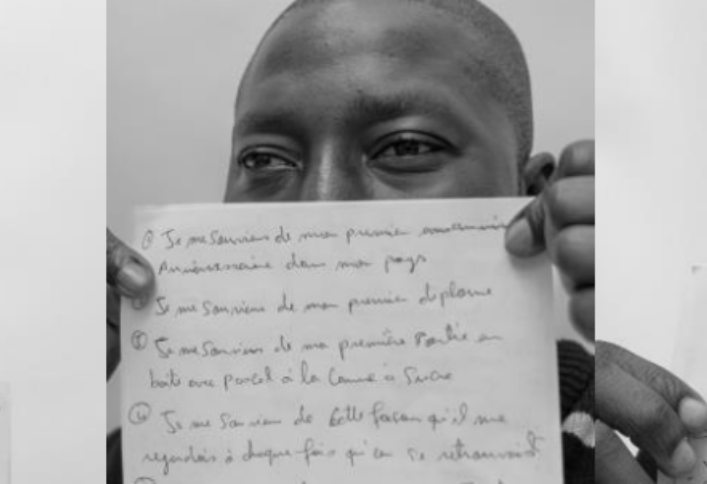 ① Je me souviens de mon premier
Anniversaire dans mon pays
Je me souviens de mon premier diplome
③ Je me souviens de ma première sortie en
boîte avec à la Canne à Sucre
④ Je me souviens de cette façon qu'il me
regardais à chaque fois qu'on se retrouvait